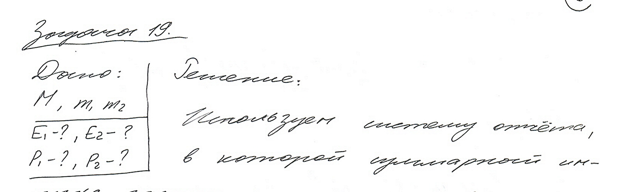 Задача 19.
Дано:
M, m₁ m₂
E₁-?, E₂-?
P₁-?, P₂-?
Решение:
Используем систему отчёта,
в которой суммарной им-